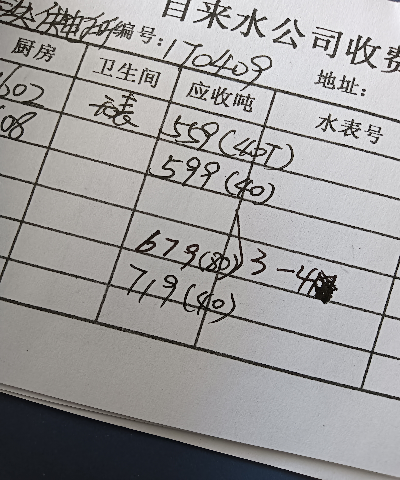 自来水公司收费
编号: 170409
地址:
厨房 卫生间 应收吨 水表号
602 559(40T)
608 599(40)
679(80) 3-4
719(40)